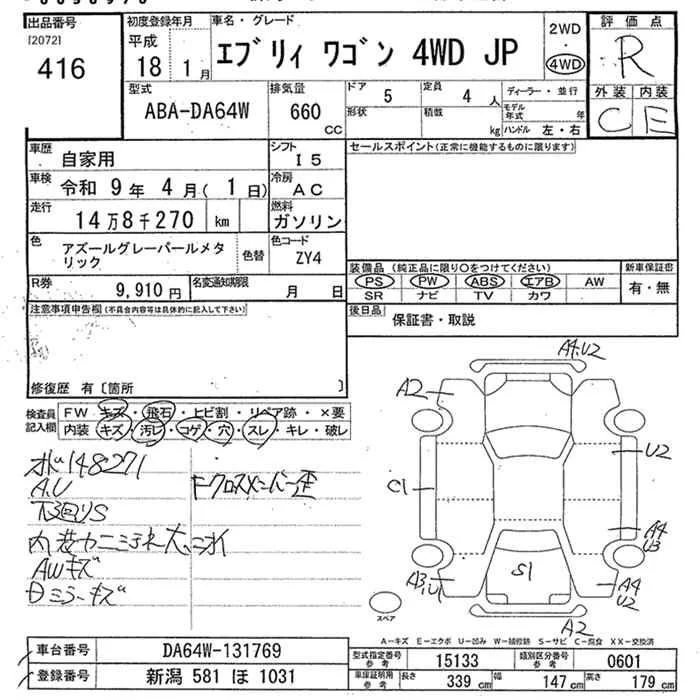 出品番号
[2072]
416
初度登録年月
平成
18 1月
車名・グレード
エブリィ ワゴン 4WD JP
2WD
・
4WD
評価点
R
外装 内装
C E
型式
ABA-DA64W
排気量
660
CC
ドア
5
定員
4 人
形状
積載
kg
ディーラー・並行
モデル
年式 年
ハンドル 左・右
車歴
自家用
シフト
I5
車検
令和 9年 4月( 1日)
冷房
AC
走行
14万8千270 km
燃料
ガソリン
色
アズールグレーパールメタ
リック
色替
色コード
ZY4
R券
9,910円
名変通知期限
月 日
セールスポイント(正常に機能するものに限ります)
装備品 (純正品に限り○をつけてください)
PS PW ABS エアB AW
SR ナビ TV カワ
新車保証書
有・無
後日品
保証書・取説
注意事項申告欄(不具合内容等は具体的に記入して下さい)
修復歴 有〔箇所 〕
検査員
記入欄
FW キズ・飛石・ヒビ割・リペア跡・×要
内装 キズ・汚レ・コゲ・穴・スレ・キレ・破レ
148271
A.U
下廻りS
AWキズ
Dミラーキズ
Fクロスメンバー歪
A4.U2
A2
U2
C1
A4
U3
A3.U1
S1
A4
U2
A2
スペア
A-キズ E-エクボ U-凹み W-補修跡 S-サビ C-腐食 XX-交換済
車台番号
DA64W-131769
登録番号
新潟 581 ほ 1031
型式指定番号
参考
15133
類別区分番号
参考
0601
車庫証明用
参考
長さ
339 cm
幅
147 cm
高さ
179 cm